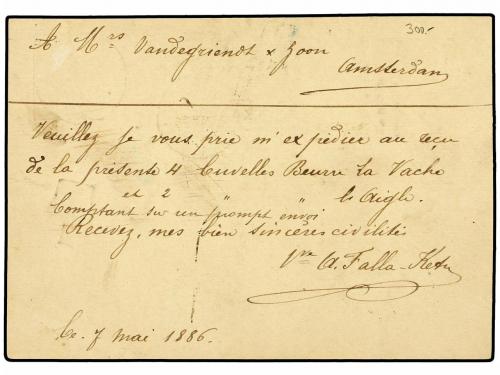 300.-
A Mrs Vandegriendt & Zoon
Amsterdam
Veuillez je vous prie m'expédier au reçu
de la présente 4 Cuvelles Beurre la Vache
et 2 " " le Aigle.
Comptant sur un prompt envoi
Recevez, mes bien sincères civilités
Vve A. Falla-
7 mai 1886.